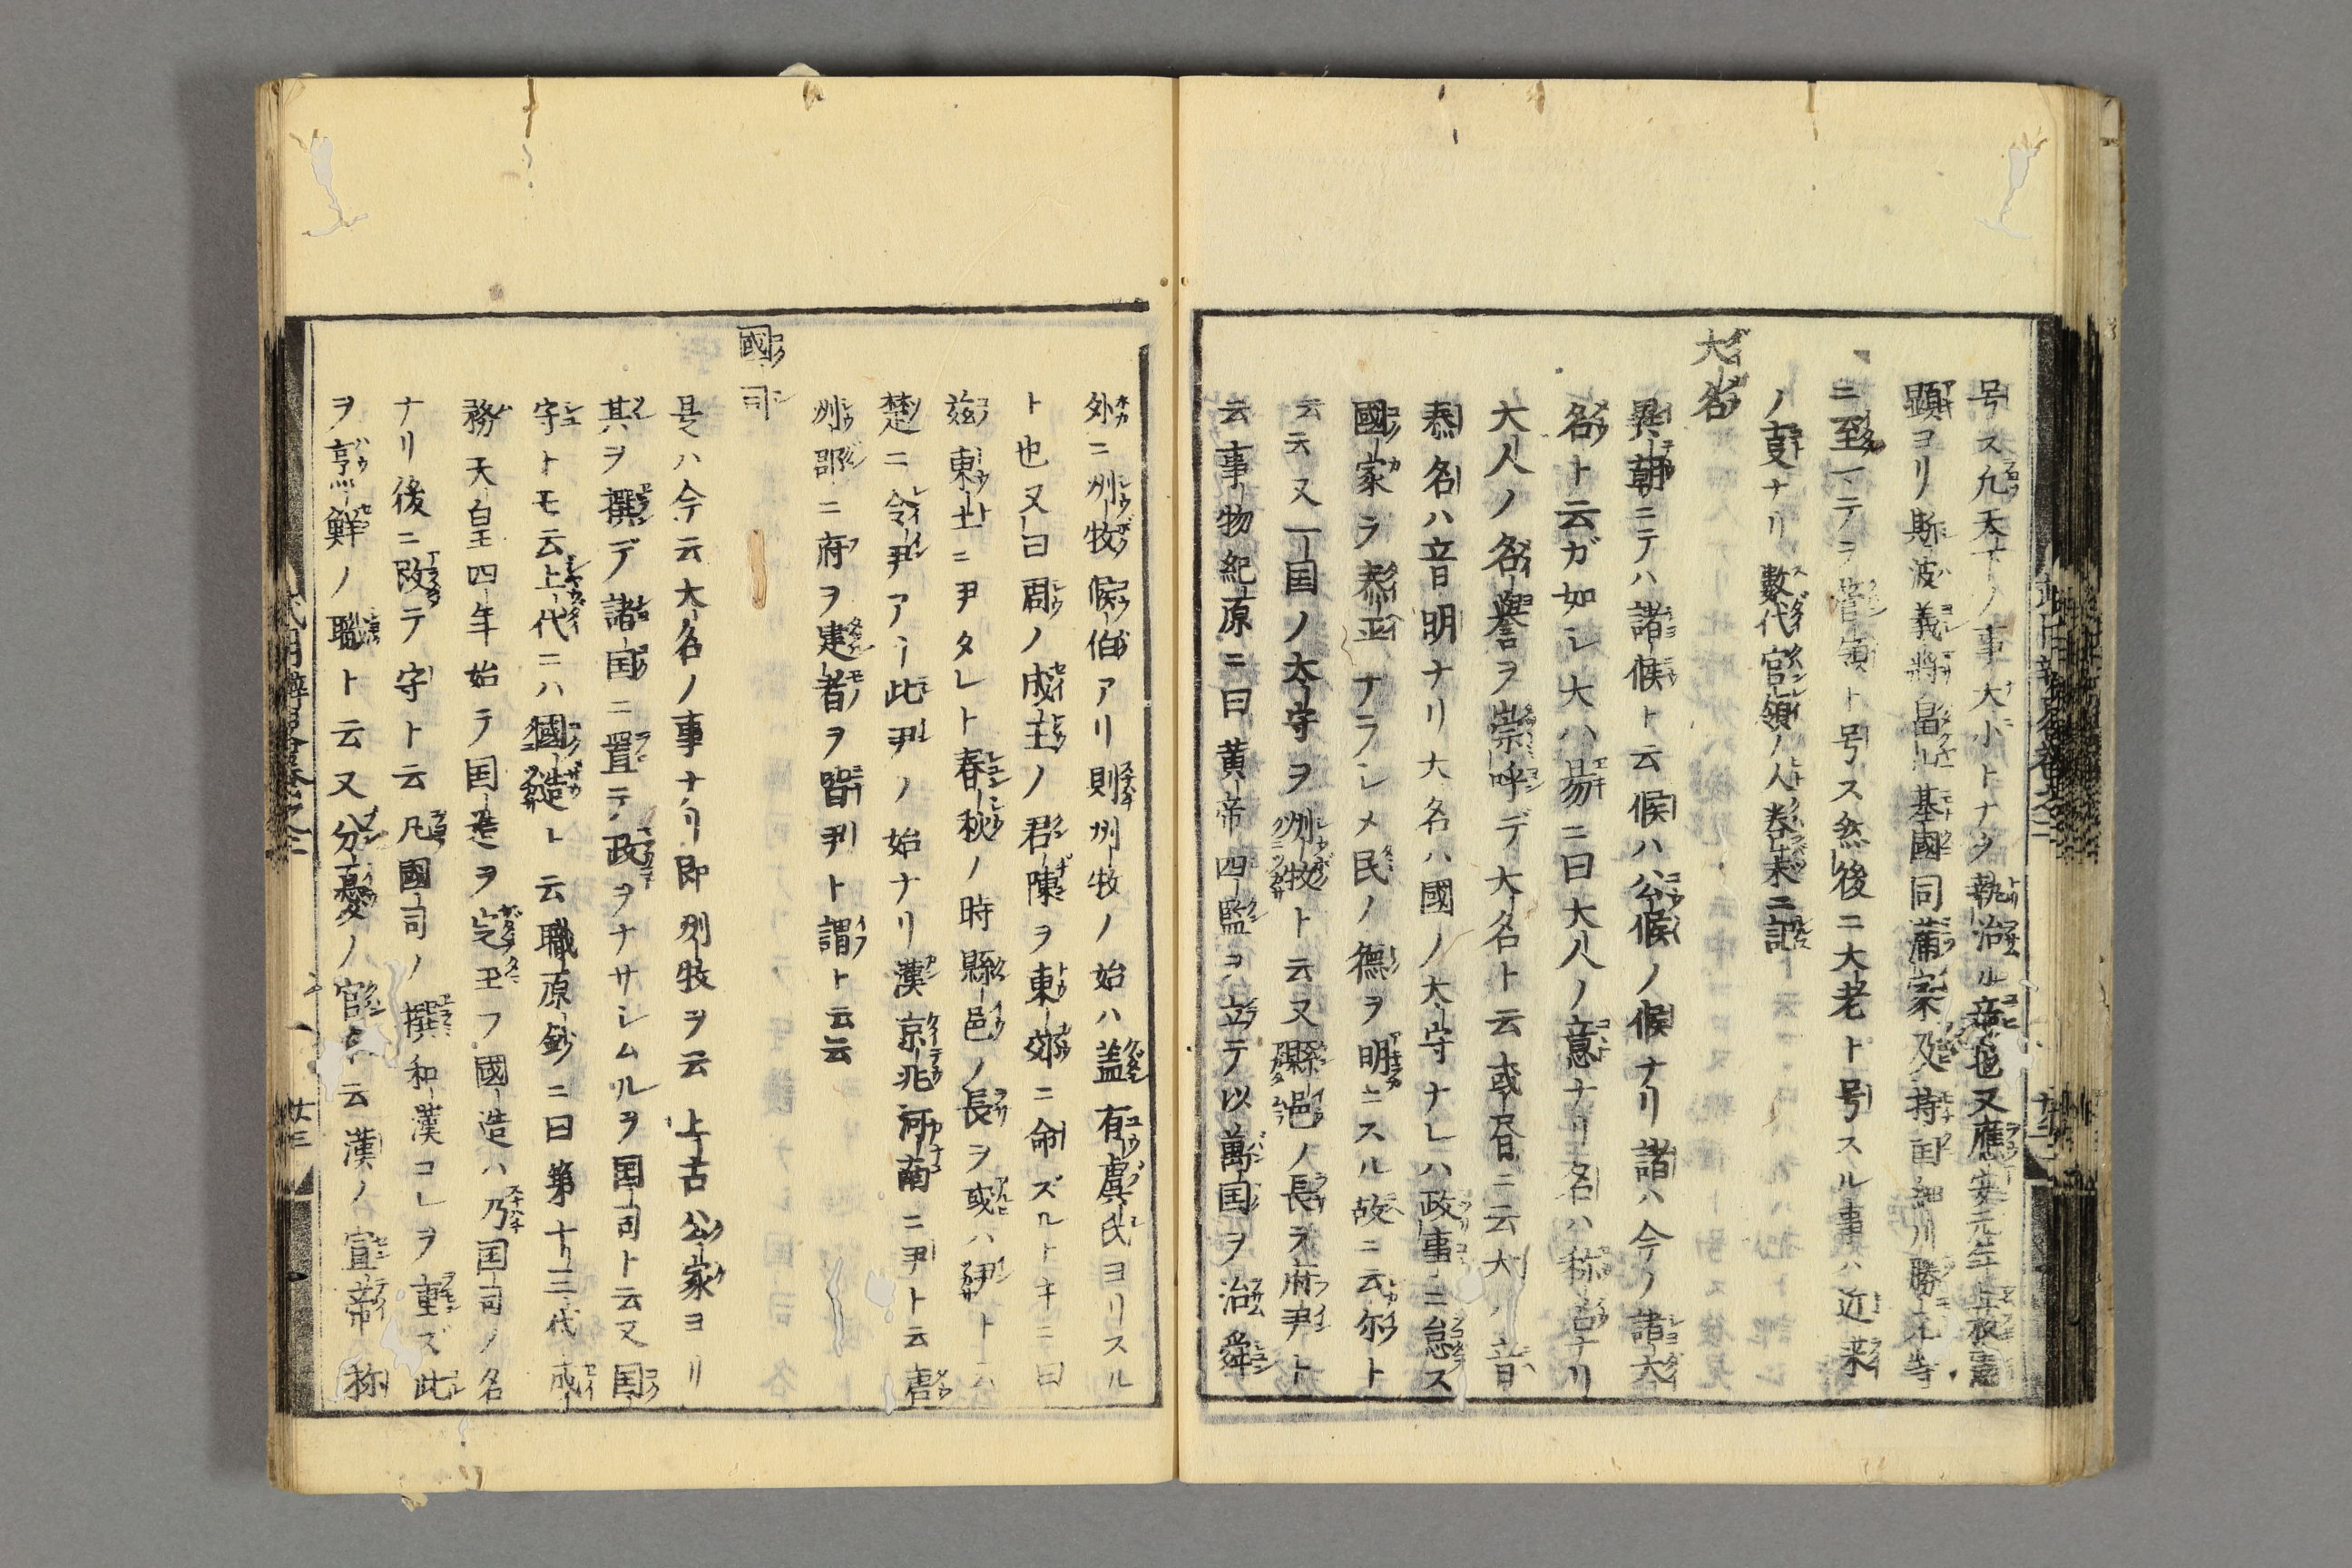 号ス允天下ノ事大小トナク執治ル意也又應安元年
顕ヨリ斯波義将畠山基國同蒲家及持国細川勝元等
ニ至テヲ管領ト号ス然後ニ大老ト号スル事ハ近来
ノ支ナリ数代官領ノ人巻末ニ記
大名
異朝ニテハ諸候ト云候ハ公候ノ候ナリ諸ハ今ノ諸大
名ト云ガ如シ大ハ易ニ曰大人ノ意ナリ名ハ称名ナリ
大人ノ名誉ヲ崇呼デ大名ト云或昏ニ云大ノ音
恭名ハ音明ナリ大名ハ國ノ大守ナレハ政事ニ怠ス
國家ヲ泰正ナラシメ民ノ德ヲ明ニスル故ニ云尓ト
云云又一国ノ太守ヲ州牧ト云又縣邑ノ長ヲ府尹ト
云事物紀原ニ曰黄帝四監ヲ立テ以萬国ヲ治舜
外ニ州牧候伯アリ則州牧ノ始ハ蓋有虞氏ヨリスル
ト也又曰周ノ成王ノ君陳ヲ東郊ニ命ズルトキニ曰
茲東土ニ尹タレト春秋ノ時縣邑ノ長ヲ或ハ尹ト云
楚ニ令尹アリ此尹ノ始ナリ漢京兆河南ニ尹ト云唐
州郡ニ府ヲ建者ヲ皆尹ト謂ト云云
國司
是ハ今云大名ノ事ナリ即州牧ヲ云上古公家ヨリ
其ヲ撰デ諸国ニ置テ政ヲナサシムルヲ国司ト云又国
守トモ云上代ニハ國造ト云職原鈔ニ曰第十三代成
務天皇四年始テ国造ヲ定玉フ國造ハ乃国司ノ名
ナリ後ニ改テ守ト云凡國司ノ撰和漢コレヲ重ズ此
ヲ亨鮮ノ職ト云又分憂ノ官ト云漢ノ宣帝称
廿三